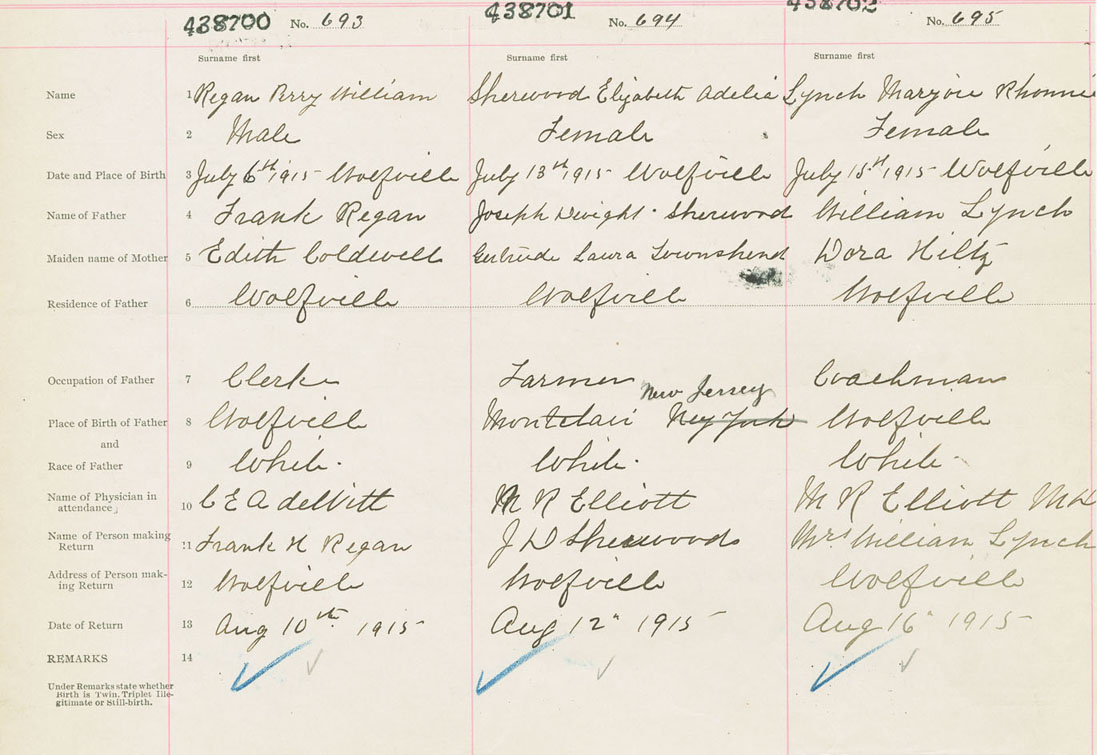 438700 No. 693 438701 No. 694 438702 No. 695
Surname first Surname first Surname first
Name 1 Regan Perry William Sherwood Elizabeth Adelia Lynch Marjorie Rhonnie
Sex 2 Male Female Female
Date and Place of Birth 3 July 6th 1915 Wolfville July 13th 1915 Wolfville July 15th 1915 Wolfville
Name of Father 4 Frank Regan Joseph Dwight Sherwood William Lynch
Maiden name of Mother 5 Edith Coldwell Gertrude Laura Townshend Dora Hiltz
Residence of Father 6 Wolfville Wolfville Wolfville
Occupation of Father 7 Clerk Farmer Coachman
New Jersey
Place of Birth of Father 8 Wolfville Montclair New York Wolfville
and
Race of Father 9 White White White
Name of Physician in
attendance 10 C E A deWitt M R Elliott M R Elliott MD
Name of Person making
Return 11 Frank H Regan J D Sherwood Mrs William Lynch
Address of Person mak-
ing Return 12 Wolfville Wolfville Wolfville
Date of Return 13 Aug 10th 1915 Aug 12" 1915 Aug 16" 1915
REMARKS 14
Under Remarks state whether
Birth is Twin, Triplet Ille-
gitimate or Still-birth.